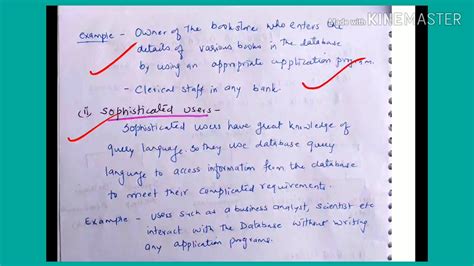 Made with KINEMASTER
Example - Owner of the bookstore who enters the
details of various books in the database
by using an appropriate application program.
- Clerical staff in any bank.
(ii) Sophisticated users -
Sophisticated users have great knowledge of
query language. So they use database query
language to access information from the database
to meet their complicated requirements.
Example - Users such as a business analyst, scientist etc
interact with the Database without writing
any application programs.